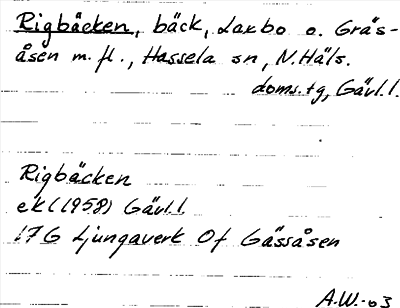 Rigbäcken, bäck, Laxbo o. Gräs-
åsen m.fl., Hassela sn, N.Häls.
doms.tg, Gävl.l.
Rigbäcken
ek (1958) Gävl.l
17G Ljungaverk 0f Gässåsen
A.W.-03